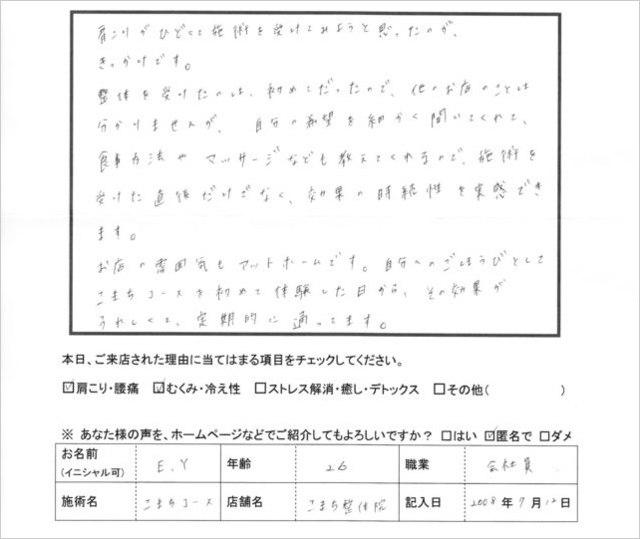 肩こりがひどくて施術を受けてみようと思ったのが、
きっかけです。
整体を受けたのは、初めてだったので、他のお店のことは
分かりませんが、自分の希望を細かく聞いてくれて、
食事方法やマッサージなども教えてくれるので、施術を
受けた直後だけでなく、効果の持続性を実感でき
ます。
お店の雰囲気もアットホームです。自分へのごほうびとして
こまちコースを初めて体験した日から、その効果が
うれしくて、定期的に通ってます。
本日、ご来店された理由に当てはまる項目をチェックしてください。
☑肩こり・腰痛 ☑むくみ・冷え性 □ストレス解消・癒し・デトックス □その他( )
※ あなた様の声を、ホームページなどでご紹介してもよろしいですか? □はい ☑匿名で □ダメ
お名前(イニシャル可) E.Y 年齢 26 職業 会社員
施術名 こまちコース 店舗名 こまち整体院 記入日 2008年7月12日